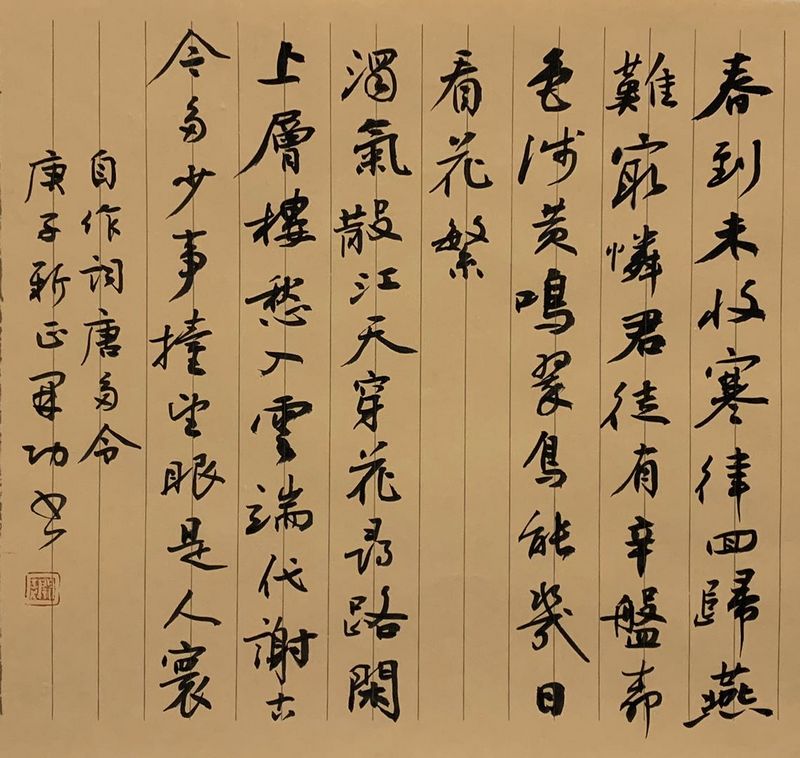 春到未收寒律囬歸燕
難㝡憐君徒有辛盤
色淺黃鳴翠鳥能幾日
看花繁
濁氣散江天穿花尋路閑
上層樓愁入雲端代謝古
今多少事擡望眼是人寰
自作詞唐多令
庚子新正功书